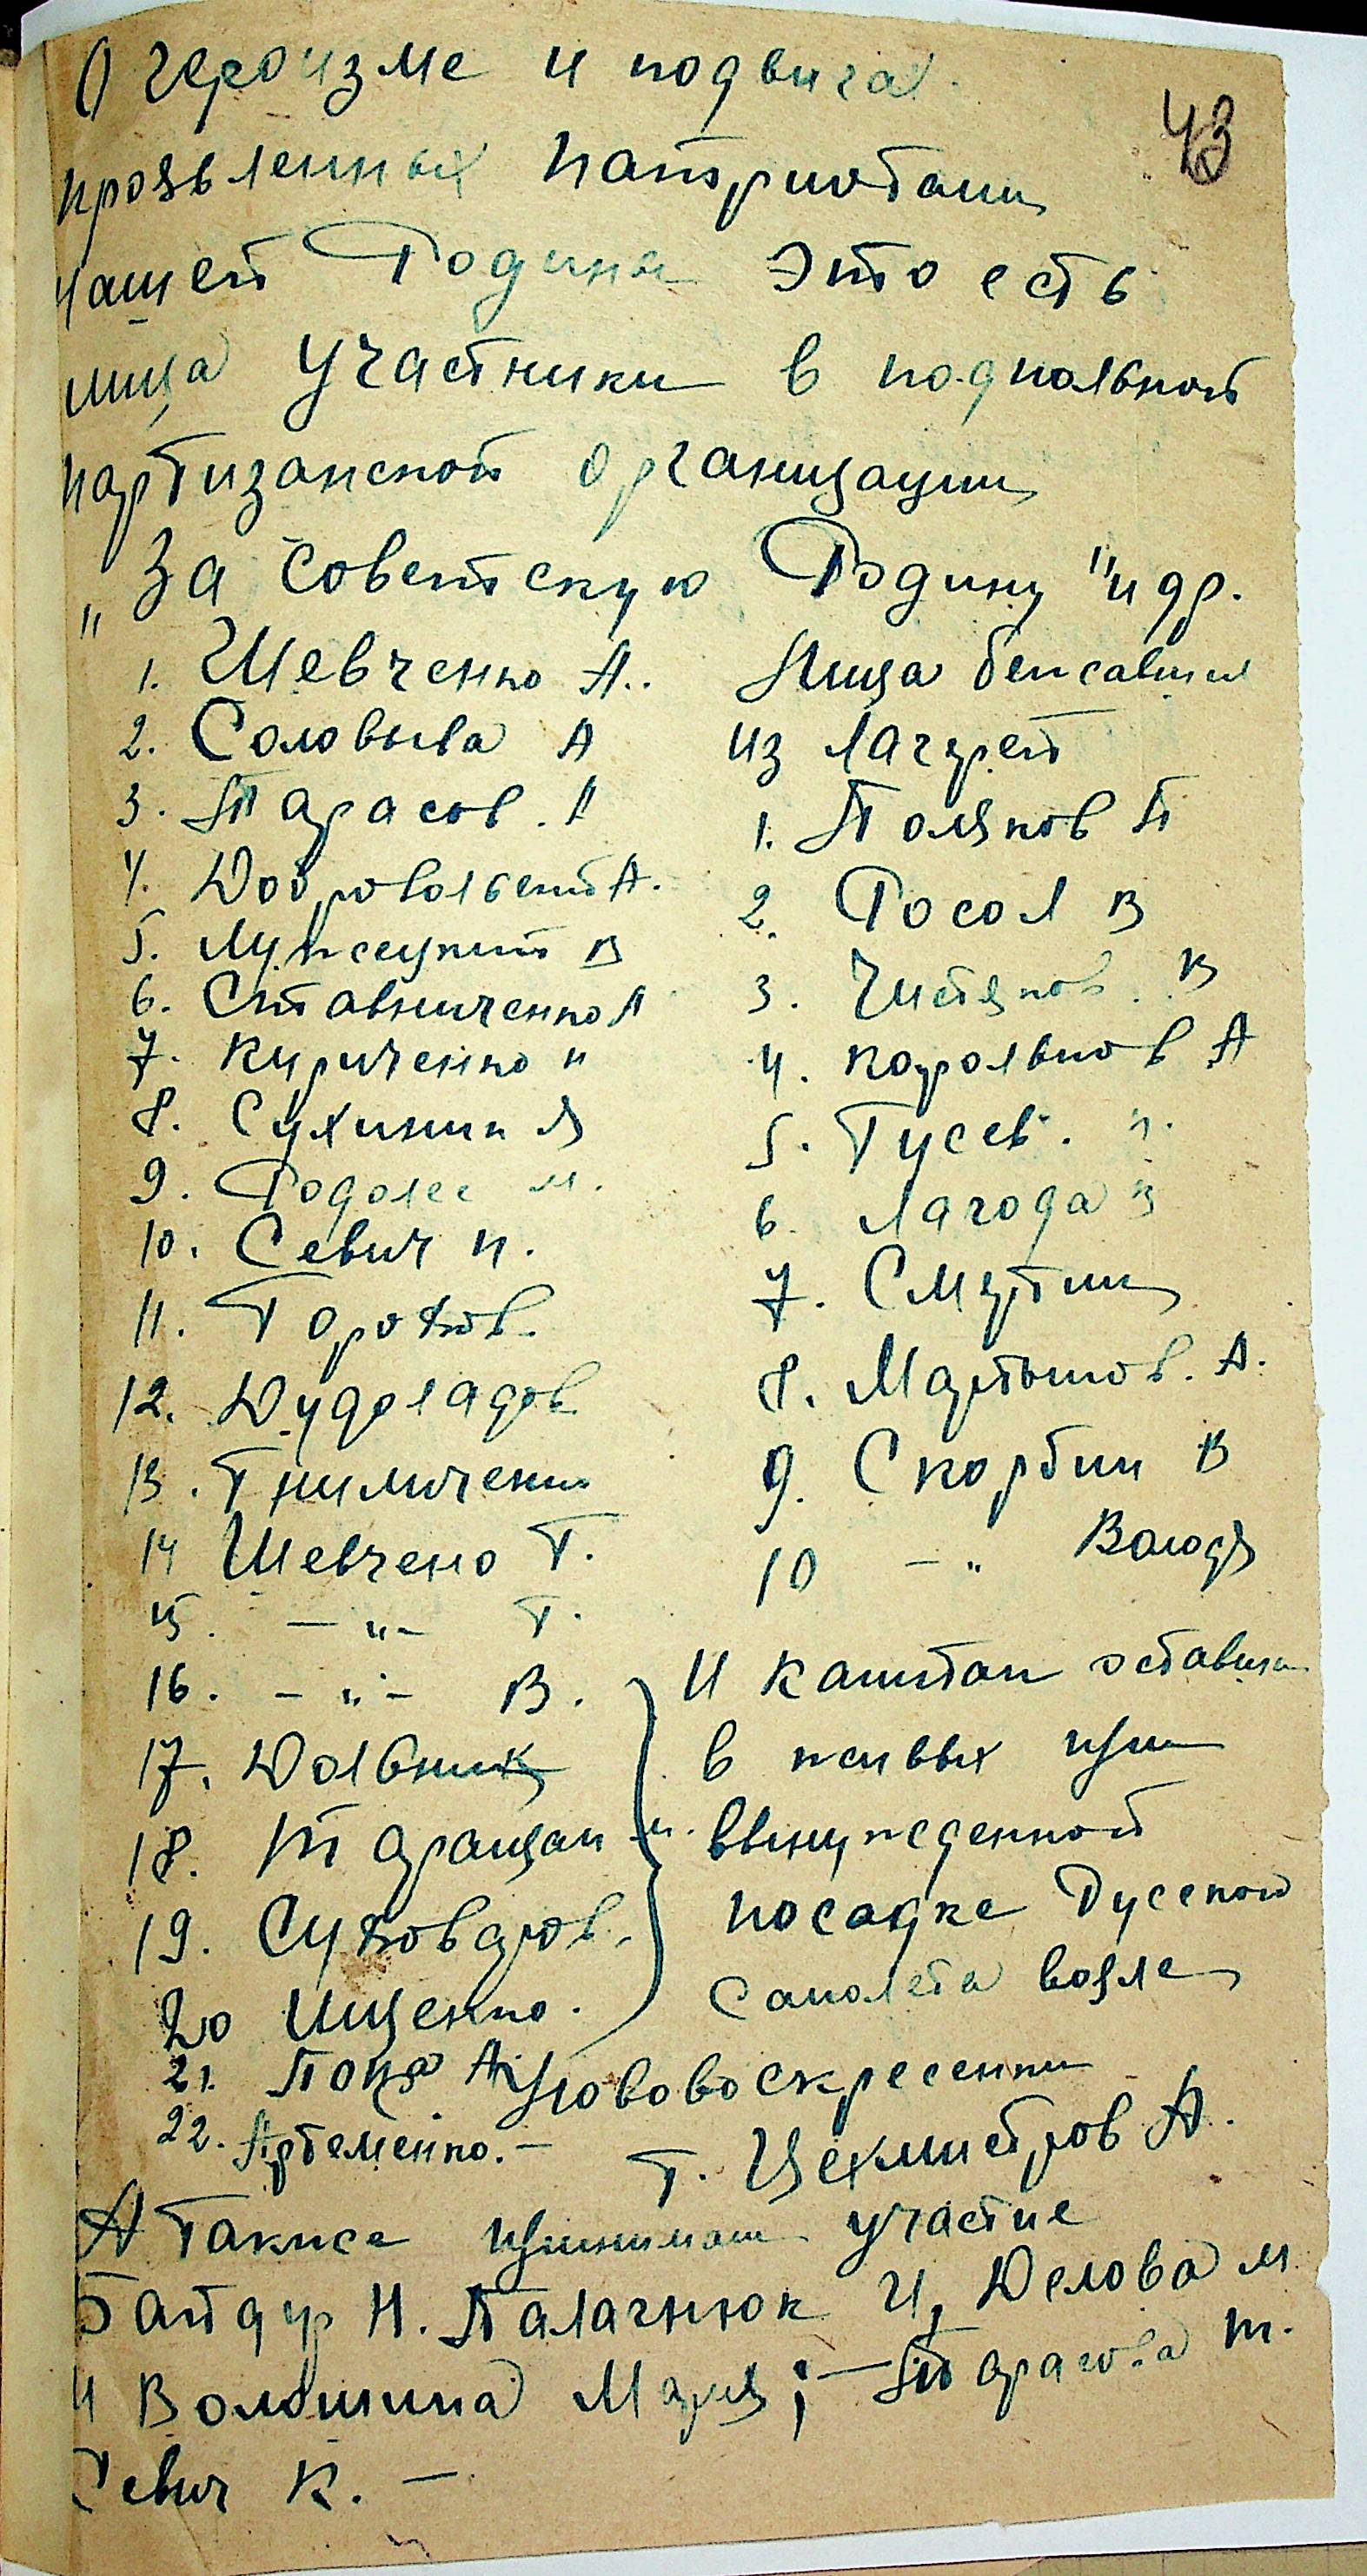 О героизме и подвигах
43
проявленных патриотами
нашей Родины это есть
лица участники в подпольной
партизанской организации
"За Советскую Родину" и др.
1. Шевченко А.
2. Соловьева А
3. Тарасов. А
4. Добровольский А.
5. Лужецкий В
6. Ставниченко А
7. Кириченко и
8. Сухинин Я
9. Родолес м.
10. Севич н.
11. Горохов.
12. Дудоладов
13. Гниличенко
14 Шевчено Г.
15. — " — Г.
16. — " — В.
17. Дольник
18. Таращан и.
19. Суховаров.
20 Ищенко.
21. Попа А
22. Артеменко. —
Лица бежавшие
из лагерей
1. Поляков П
2. Росол В
3. Чистяков. В
4. Корольков А
5. Гусев. н.
6. Лагода в
7. Смутин
8. Мартынов. А.
9. Скорбин В
10 — " Володя
И капитан оставшись
в живых при
вынужденной
посадке Русского
самолета возле
Нововоскресенки
т. Цехмистров А.
А также принимали участие
Байдур Н. Палагнюк И, Делова м
и Волошина Мария; — Тарасова т.
Севич К. —